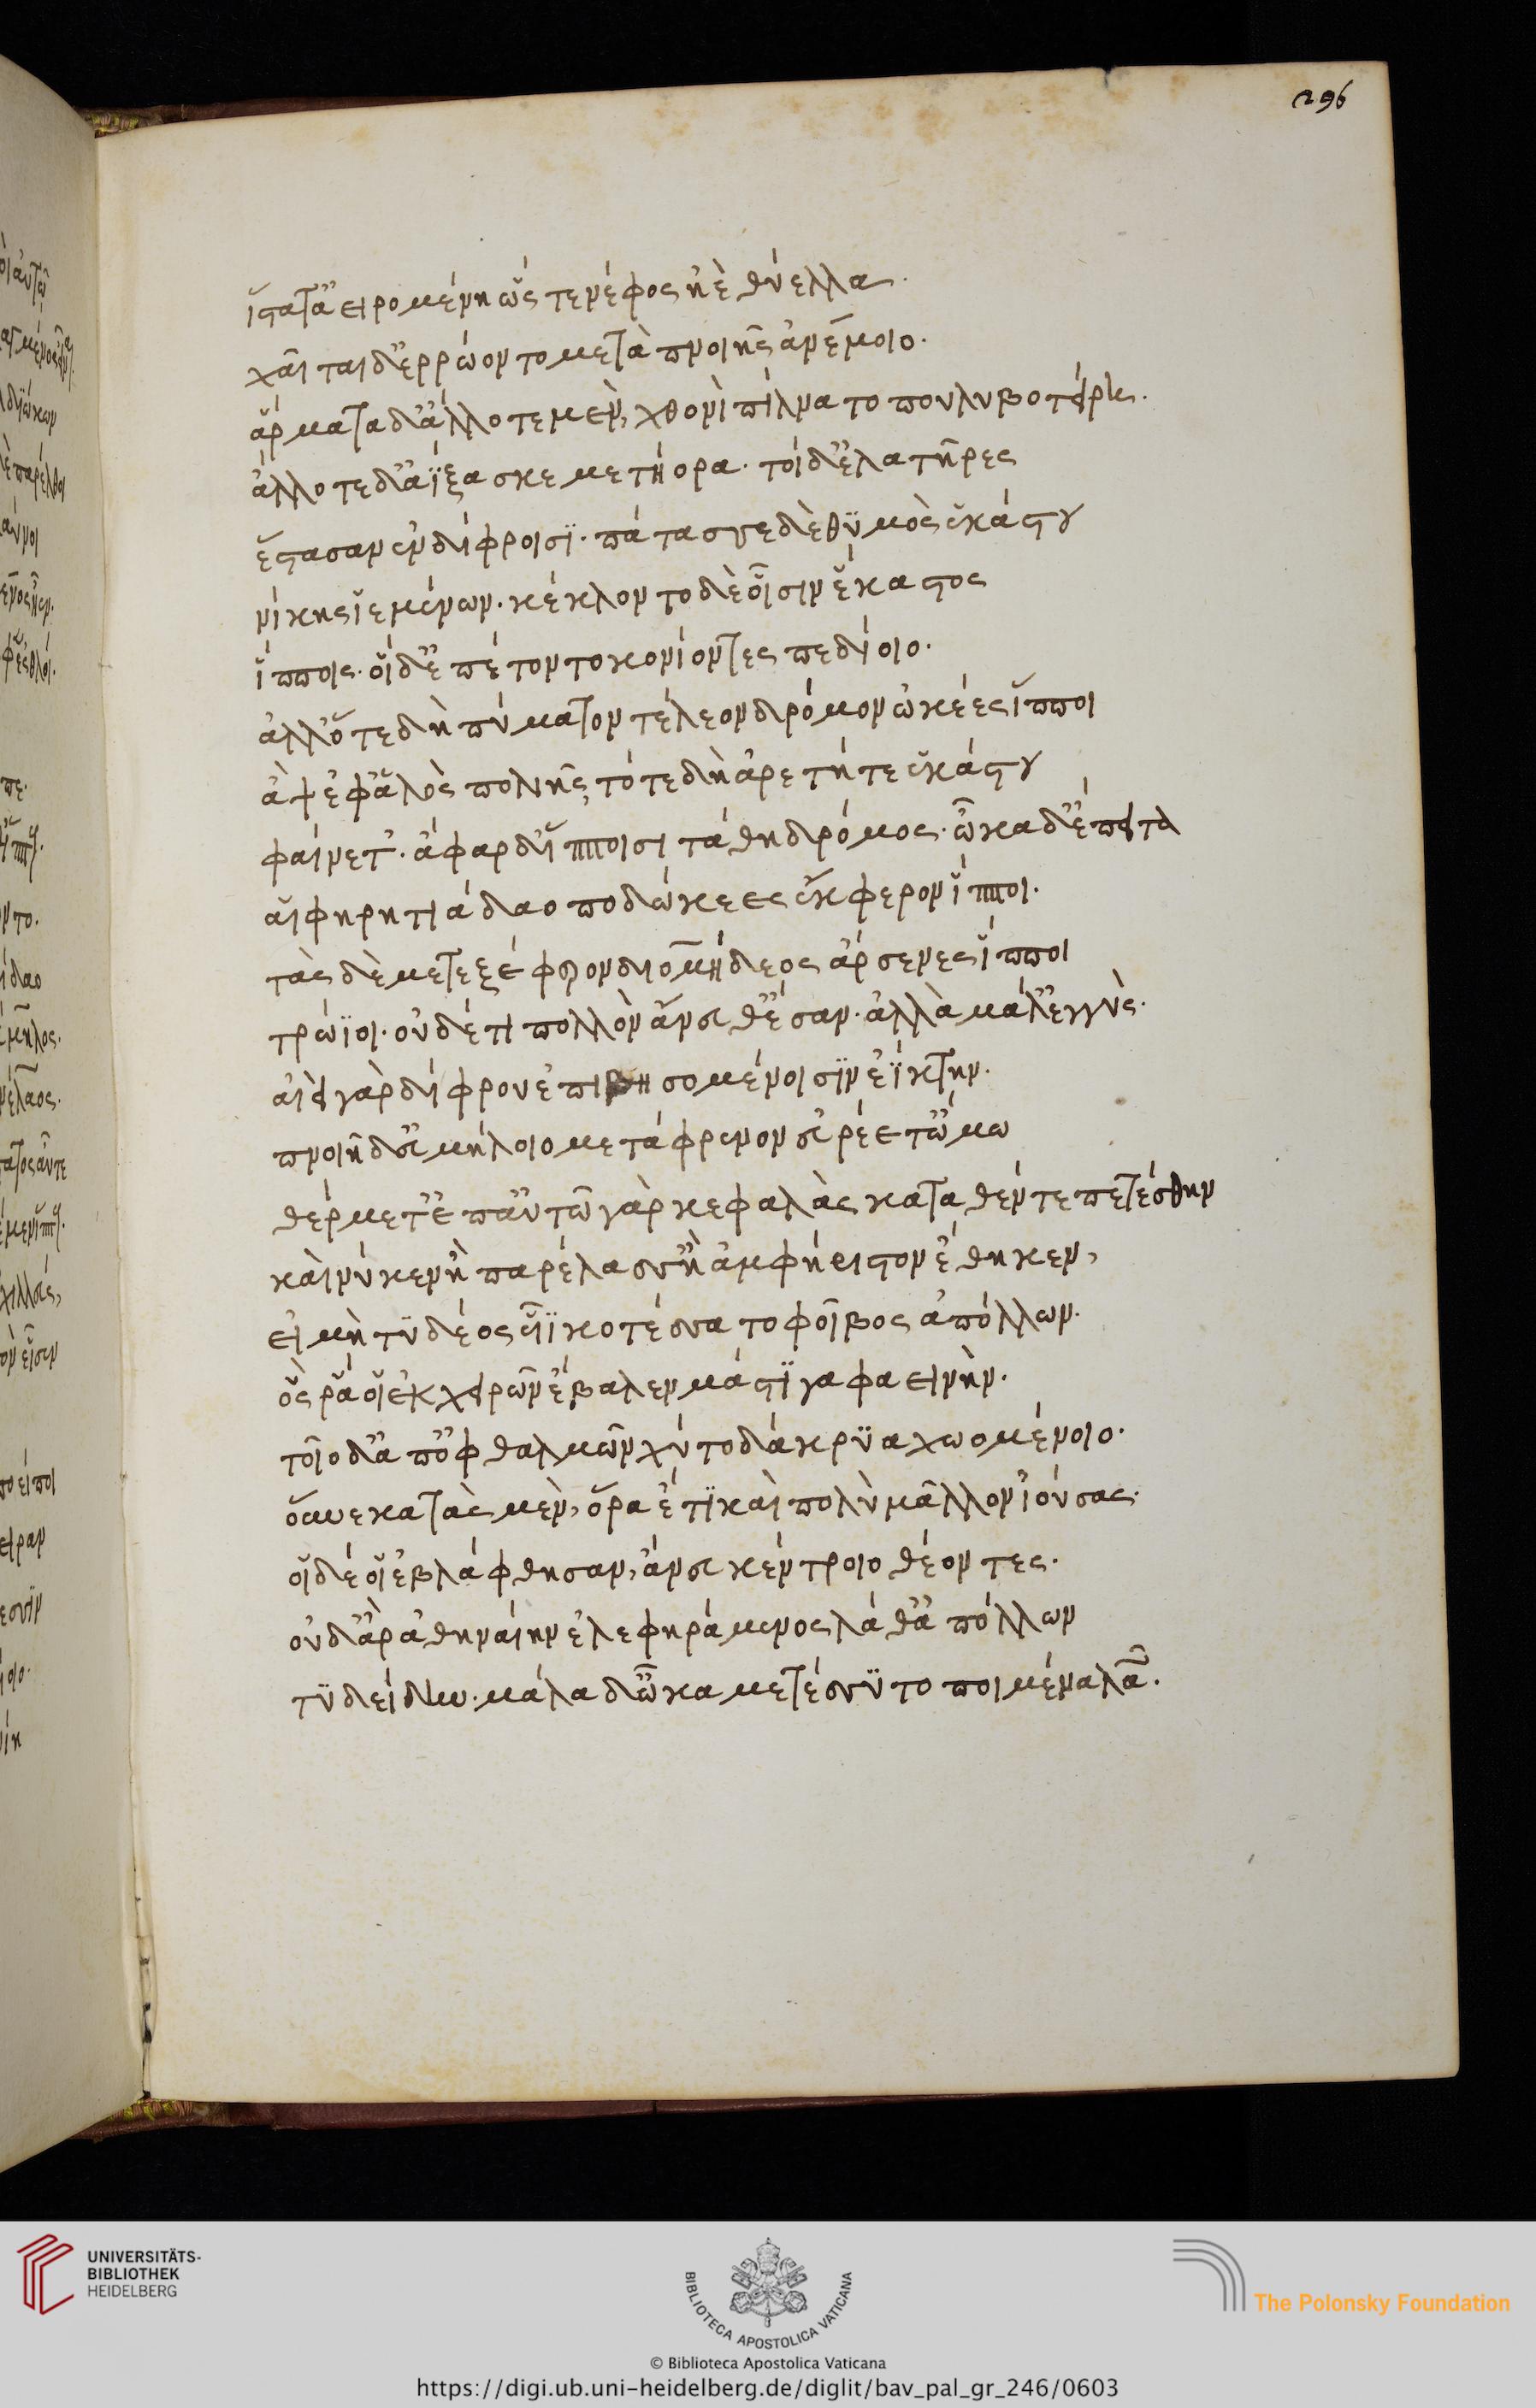 296
ἵστατ' ἀειρομένη ὥς τε νέφος ἠὲ θύελλα.
χαῖται δ' ἐρρώοντο μετὰ πνοιῆς ἀνέμοιο.
ἅρματα δ' ἄλλοτε μὲν, χθονὶ πίλνατο πουλυβοτείρη.
ἄλλοτε δ' ἀΐξασκε μετήορα. τοὶ δ' ἐλατῆρες
ἕστασαν ἐν δίφροισϊ. πάτασσε δὲ θϋμὸς ἑκάστου
νίκης ἱεμένων. κέκλοντο δὲ οἷσιν ἕκαστος
ἵπποις. οἱ δ' ἐπέτοντο κονίοντες πεδίοιο.
ἀλλ' ὅτε δὴ πύματον τέλεον δρόμον ὠκέες ἵπποι
ἂψ ἐφ' ἁλὸς πολιῆς, τότε δὴ ἀρετή τε ἑκάστου
φαίνετ'. ἄφαρ δ' ἵπποισι τάθη δρόμος. ὦκα δ' ἔπειτα
αἱ φηρητιάδαο ποδώκεες ἔκφερον ἵπποι.
τὰς δὲ μετεξέφερον διομήδεος ἄρσενες ἵπποι
τρώϊοι. οὐδέ τι πολλὸν ἄνευθ' ἔσαν. ἀλλὰ μάλ' ἐγγὺς.
αἰεὶ γὰρ δίφρου ἐπιβησομένοισϊν ἐΐκτην.
πνοιῆ δ' εὐμήλοιο μετάφρενον εὐρέε τ' ὤμω
θέρμετ'. ἐπ' αὐτῶ γὰρ κεφαλὰς καταθέντε πετέσθην
καὶ νύ κεν ἢ παρέλασσ' ἢ ἀμφήριστον ἔθηκεν,
εἰ μὴ τϋδέος υἷϊ κοτέσσατο φοῖβος ἀπόλλων.
ὅς ῥά οἱ ἐκ χειρῶν ἔβαλεν μάστϊγα φαεινὴν.
τοῖο δ' ἀπ' ὀφθαλμῶν χύτο δάκρϋα χωομένοιο.
οὕνεκα τὰς μὲν, ὅρα ἔτϊ καὶ πολὺ μᾶλλον ἰούσας.
οἱ δέ οἱ ἐβλάφθησαν, ἄνευ κέντροιο θέοντες.
οὐδ' ἄρ' ἀθηναίην ἐλεφηράμενος λάθ' ἀπόλλων
τϋδείδην. μάλα δ' ὦκα μετέσσϋτο ποιμένα λαῶν.
UNIVERSITÄTS-
BIBLIOTHEK
HEIDELBERG
BIBLIOTECA APOSTOLICA VATICANA
The Polonsky Foundation
© Biblioteca Apostolica Vaticana
https://digi.ub.uni-heidelberg.de/diglit/bav_pal_gr_246/0603